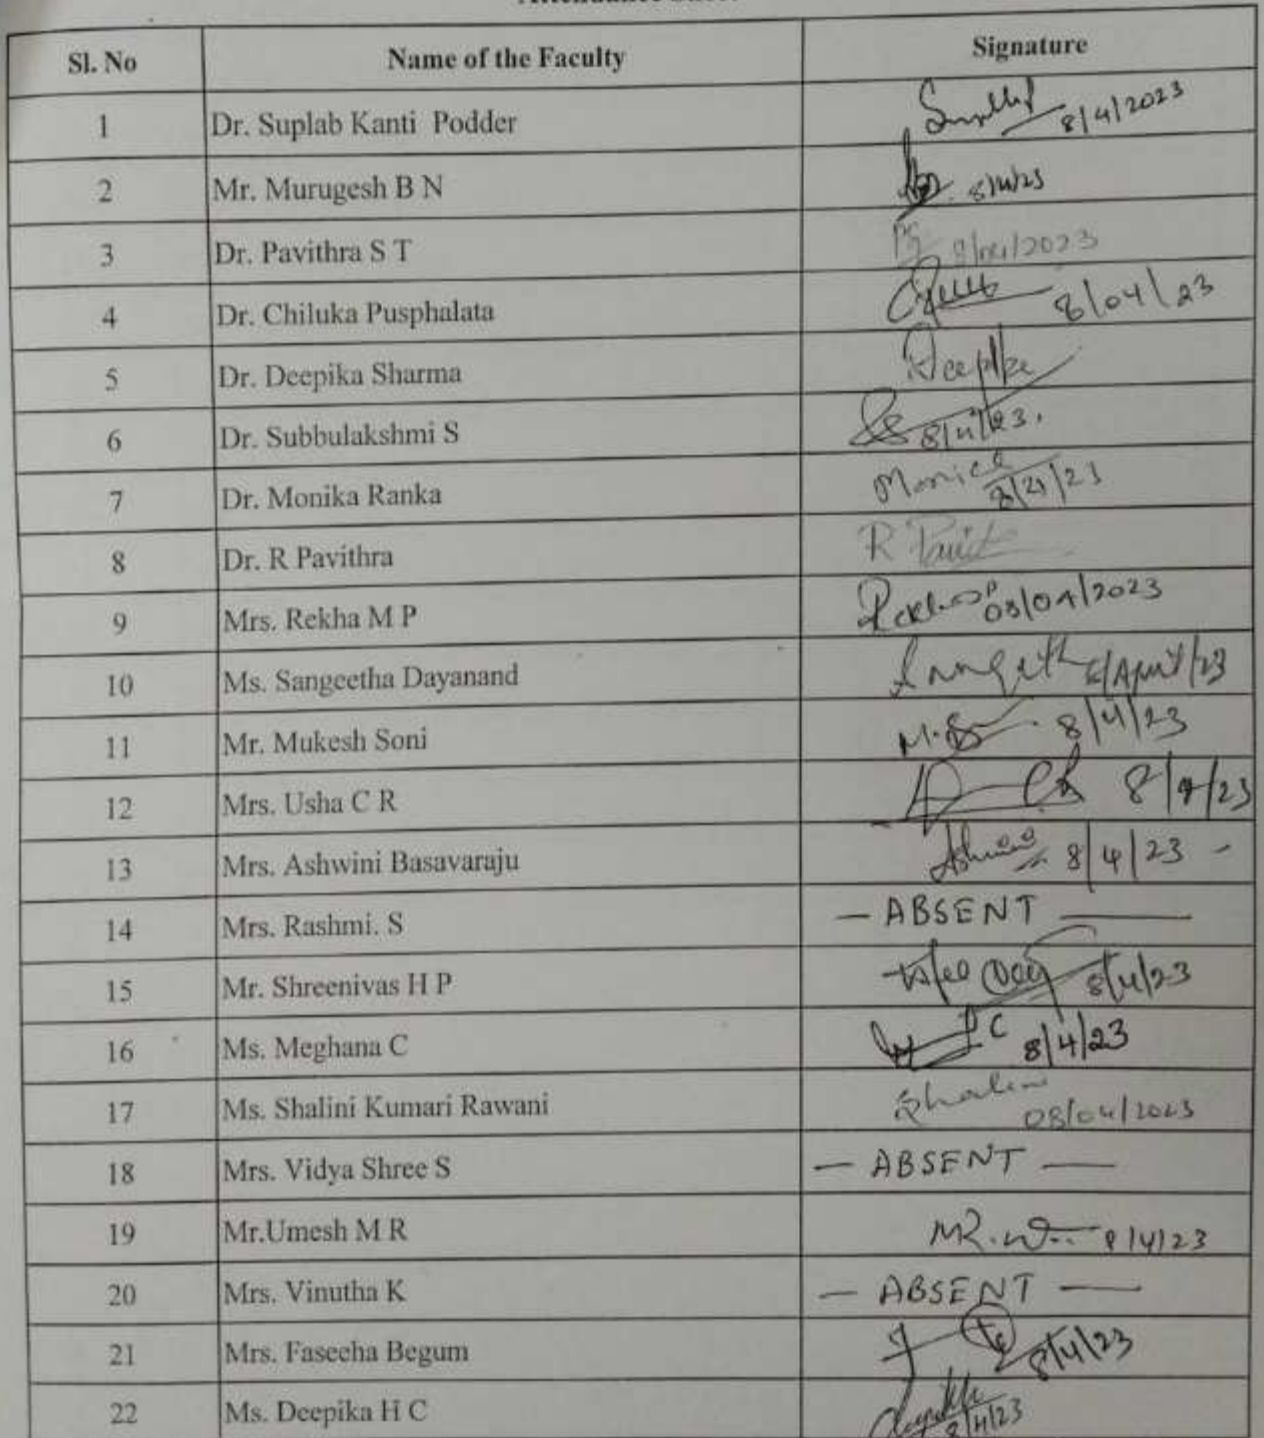 Sl. No Name of the Faculty Signature
1 Dr. Suplab Kanti Podder 8/4/2023
2 Mr. Murugesh B N 8/4/23
3 Dr. Pavithra S T 8/04/2023
4 Dr. Chiluka Pusphalata 8/04/23
5 Dr. Deepika Sharma Deepika
6 Dr. Subbulakshmi S 8/4/23.
7 Dr. Monika Ranka Monica 8/4/23
8 Dr. R Pavithra R
9 Mrs. Rekha M P 08/04/2023
10 Ms. Sangeetha Dayanand /April/23
11 Mr. Mukesh Soni 8/4/23
12 Mrs. Usha C R 8/4/23
13 Mrs. Ashwini Basavaraju 8/4/23 -
14 Mrs. Rashmi. S — ABSENT —
15 Mr. Shreenivas H P 8/4/23
16 Ms. Meghana C 8/4/23
17 Ms. Shalini Kumari Rawani Shalini 08/04/2023
18 Mrs. Vidya Shree S — ABSENT —
19 Mr.Umesh M R 8/4/23
20 Mrs. Vinutha K — ABSENT —
21 Mrs. Faseeha Begum 8/4/23
22 Ms. Deepika H C 8/4/23